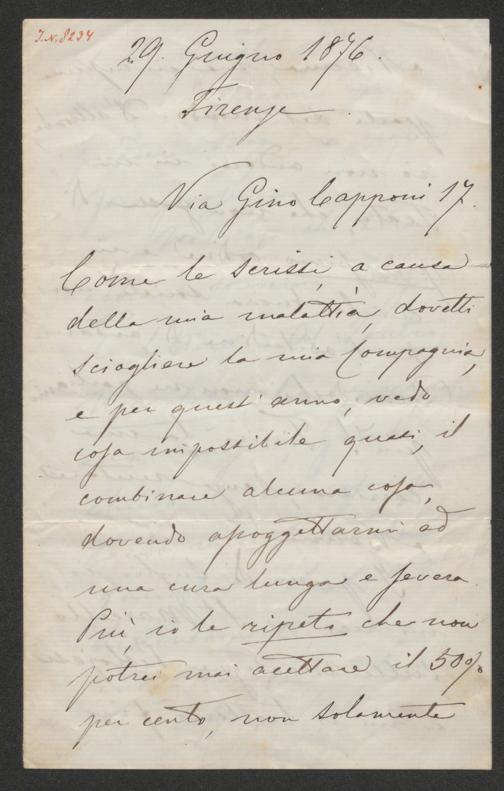 J.N. 8234
29. Giugno 1876.
Firenze
Via Gino Capponi 17.
Come le scrissi, a causa
della mia malattia, dovetti
sciogliere la mia Compagnia,
e per quest'anno, vedo
cosa impossibile quasi, il
combinare alcuna cosa,
dovendo assoggettarmi ad
una cura lunga e severa.
Più, io le ripeto che non
potrei mai acettare il 50%
per cento, non solamente